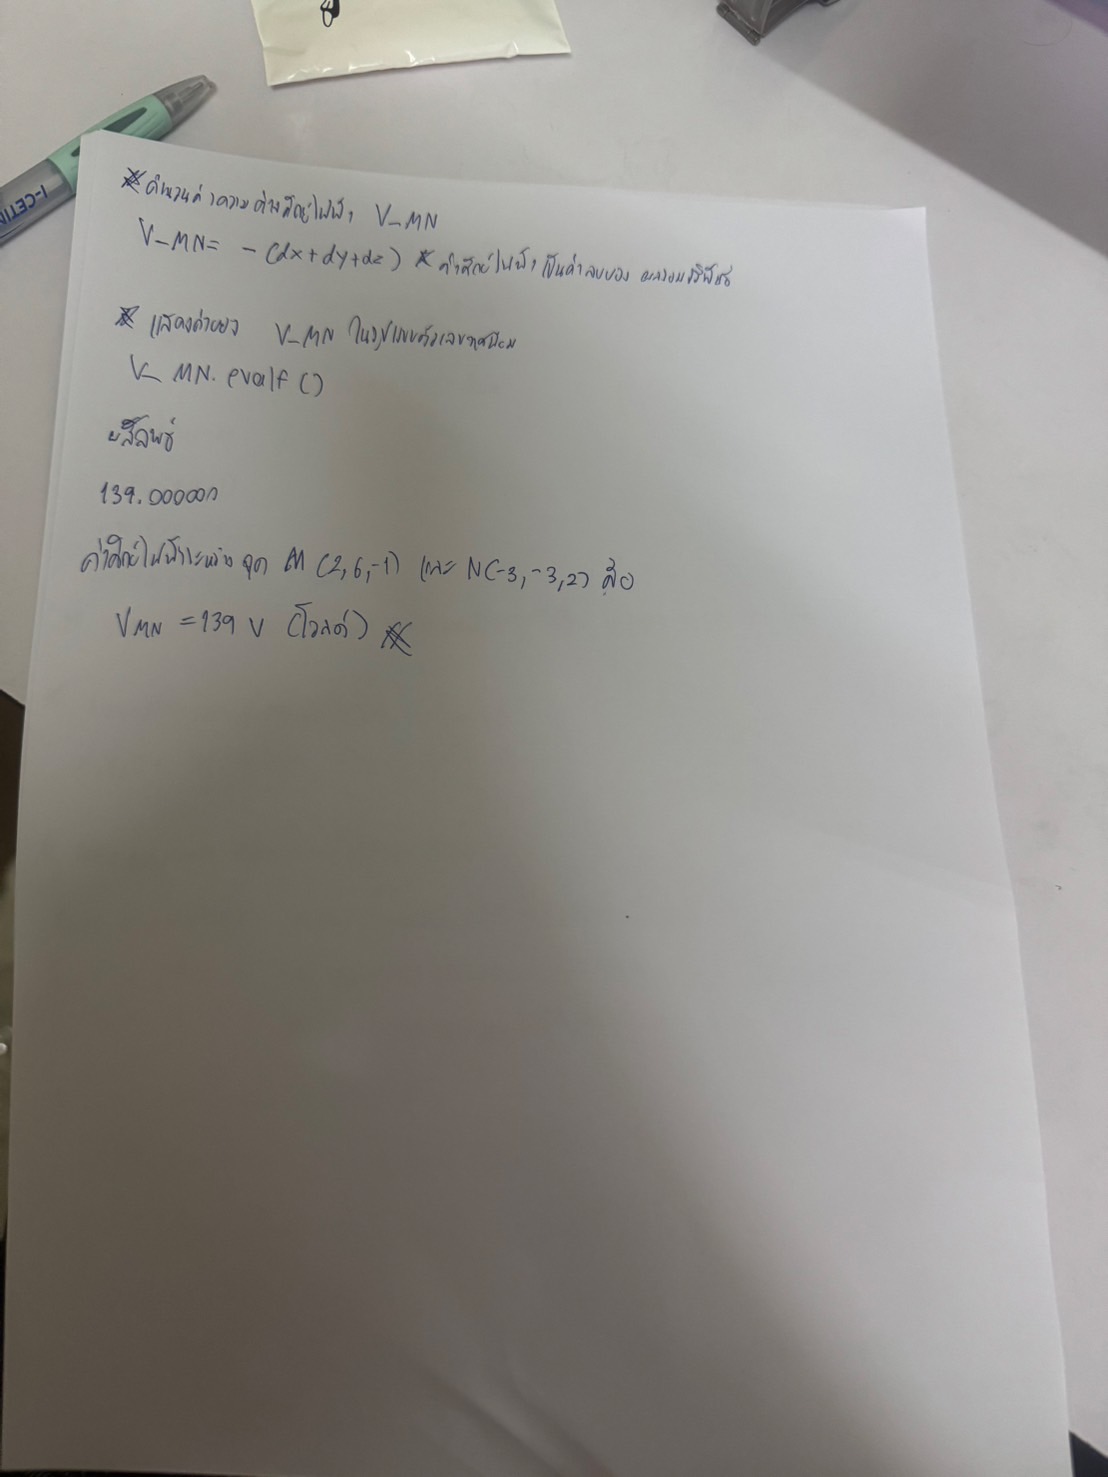 I-CETIN
* คำนวนค่าความต่างศักย์ไฟฟ้า V_MN
V_MN = - (dx+dy+dz) * ค่าศักย์ไฟฟ้าเป็นค่าลบของ ผลรวม
* แสดงค่าของ V_MN ในรูปแบบตัวเลขทศนิยม
V_MN.evalf()
ผลลัพธ์
139.00000
ค่าศักย์ไฟฟ้าระหว่าง จุด M (2,6,-1) และ N(-3,-3,2) คือ
VMN = 139 V (โวลต์) *